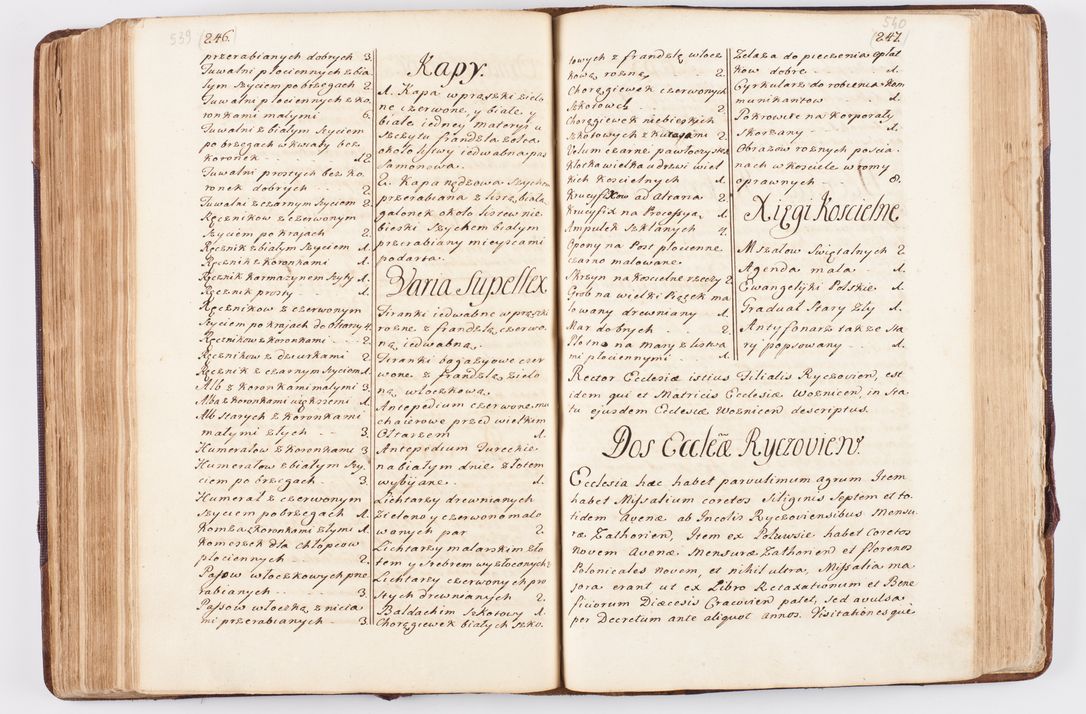 539 246.
przerabianych dobrych 3.
Tuwalni płociennych z bia
łym szyciem po brzegach 2.
Tuwalni płociennych z ko
ronkami małymi 6.
Tuwalni z białym szyciem
po brzegach w kwiaty bez
koronek 12
Tuwalni prostych bez ko
ronek dobrych 2.
Tuwalni z czarnym szyciem 2.
Ręcznikow z czerwonym
szyciem po krajach 2.
Ręcznik z białym szyciem 1.
Ręcznik z koronkami 1.
Ręcznik karmazynem szyty 1.
Ręcznik prosty 1.
Ręcznikow z czerwonym
szyciem po krajach do ołtarzy 4.
Ręcznikow z koronkami 2.
Ręcznikow z dziurkami 2.
Ręcznik z czarnym szyciem 1.
Alb z koronkami małymi 3.
Alba z koronkami większemi 1.
Alb starych z koronkami
małymi złych 3.
Humerałow z koronkami 3.
Humerałow z białym szy,
ciem po brzegach 3.
Humerał z czerwonym
szyciem po brzegach 1.
Komża z koronkami złymi 1.
Komeszek dla chłopcow
płociennych 2.
Pasow włoczkowych prze
rabianych 3.
Passow włoczką z nicia
mi przerabianych 3.
Kapy.
1. Kapa w prążki zielo
ne czerwone, y białe, y
białe iedney materyi u
szczytu frandzla żołta
około listwy iedwabna pas
samonowa.
2. Kapa nędzowa szychem
przerabiana z liszą białą
galonek około liszew nie
bieski szychem białym
przerabiany mieyscami
podarta.
Varia Supellex
Firanki iedwabne w prążki
rożne z frandzlą czerwo,
ną iedwabną.
Firanki bagazyowe czer
wone z frandzlą zielo
ną włoczkową.
Antepedium czerwone mu
chaierowe przed wielkim
Ołtarzem 1.
Antepedium Tureckie
na białym dnie złotem
wybijane 1.
Lichtarzy drewnianych
zielono y czerwono malo
wanych par 2.
Lichtarzy malarskim zło
tem y srebrem wyzłoconych 2
Lichtarzy czerwonych pro
stych drewnianych 2.
Baldachim szkotowy 1.
Choręgiewek białych szko.
540 247.
towych z frandzlą włocz
kową rożną 2.
Choręgiewek czerwonych
szkotowch 2.
Choręgiewek niebieskich
szkotowych z kutasami 2.
Velum czarne pawłoczyste 2.
Klotka wielka u drzwi wiel
kich koscielnych 1.
Krucyfixow ad altaria 2.
Krucyfix na Processyą 1.
Ampułek szklanych 4.
Opony na Post płocienne
czarno malowane.
Skrzyn na koscielne rzeczy 2.
Grob na wielki Piątek ma
lowany drewniany 1.
Mar dobrych 2.
Płotno na mary z listwa
mi płociennymi 1.
Żelaza do pieczenia opłat
kow dobre 1.
Cyrkularz do robienia Kom
munikantow 1.
Pokrowiec na korporały
skorzany 1.
Obrazow rożnych po scia
nach w kosciele w ramy
oprawnych 8.
Xięgi Koscielne
Mszałow swiętalnych 2.
Agenda mała 1.
Ewangelyki Polskie 1.
Graduał stary zły 1.
Antyfonarz także sta
ry popsowany 1.
Rector Ecclesiæ istius Filialis Ryczovien, est
idem qui et Matricis Ecclesiæ Woznicen, in Sta
tu ejusdem Ecclesiæ Woznicen descriptus.
Dos Eccliæ Ryczovien.
Ecclesia hæc habet parvulimum agrum. Item
habet Missalium coretos Siliginis Septem et to
tidem Avenæ ab Incolis Ryczoviensibus Mensu
ræ Zathorien, Item ex Połuwsie habet Coretos
Novem Avenæ Mensuræ Zathorien et florenos
Polonicales Novem, et nihil ultra, Missalia ma
jora erant ut ex Libro Retaxationum et Bene
ficiorum Diæcesis Cracovien patet, sed avulsa
per Decretum ante aliquot annos. Visitationes quæ